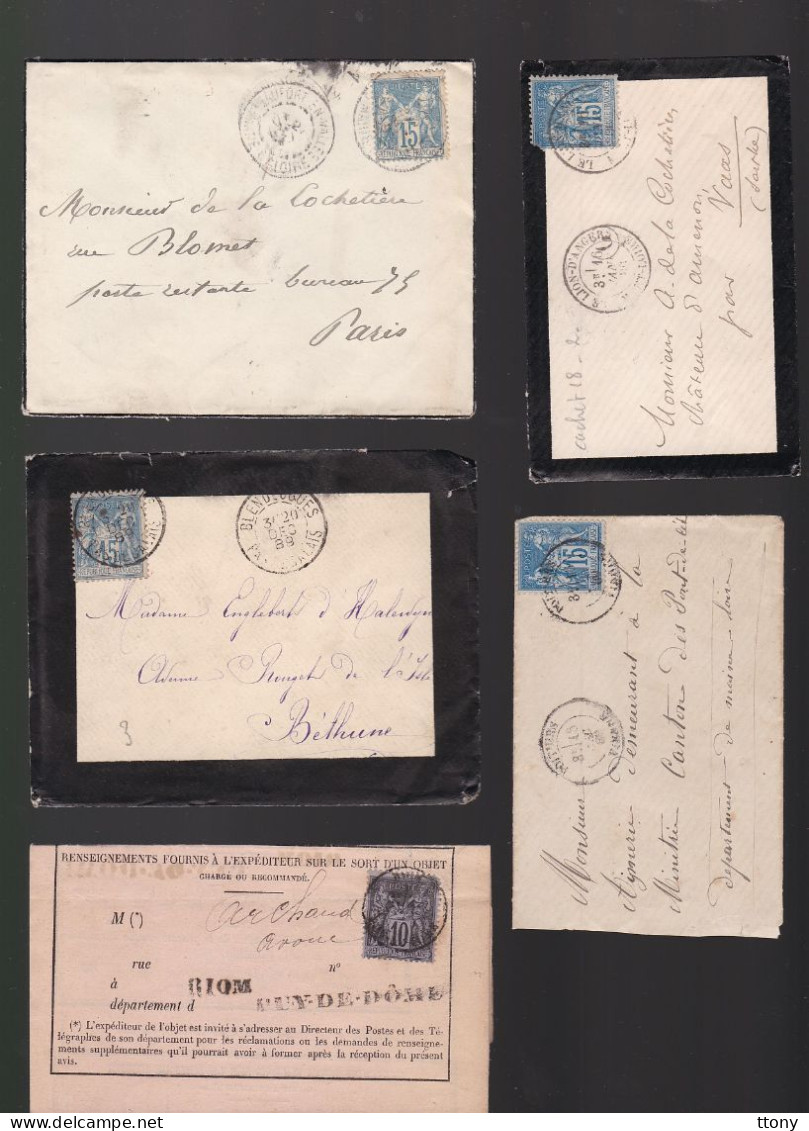 15
REPUBLIQUE FRANÇAISE
Monsieur de la Cochetière
rue Blomet
poste restante bureau 75
Paris
15
LION-D'ANGERS
Monsieur A. de la Cochetière
Château d'amenon,
par Vaas
(Sarthe)
cachet 18
15
BLENDECQUES
PAS-DE-CALAIS
Madame Englebert d'Halewyn
Rouget de l'Isle
Béthune
15
POITIERS
VIENNE
Monsieur
demeurant à la
Minitrée Canton des Pont-de-cé
departement de maine loire
RENSEIGNEMENTS FOURNIS À L'EXPÉDITEUR SUR LE SORT D'UN OBJET
CHARGÉ OU RECOMMANDÉ.
M (*) Archaud
avoué
10
rue nº
à RIOM
département d PUY-DE-DÔME
(*) L'expéditeur de l'objet est invité à s'adresser au Directeur des Postes et des Té-
légraphes de son département pour les réclamations ou les demandes de renseigne-
ments supplémentaires qu'il pourrait avoir à former après la réception du présent
avis.
ttony